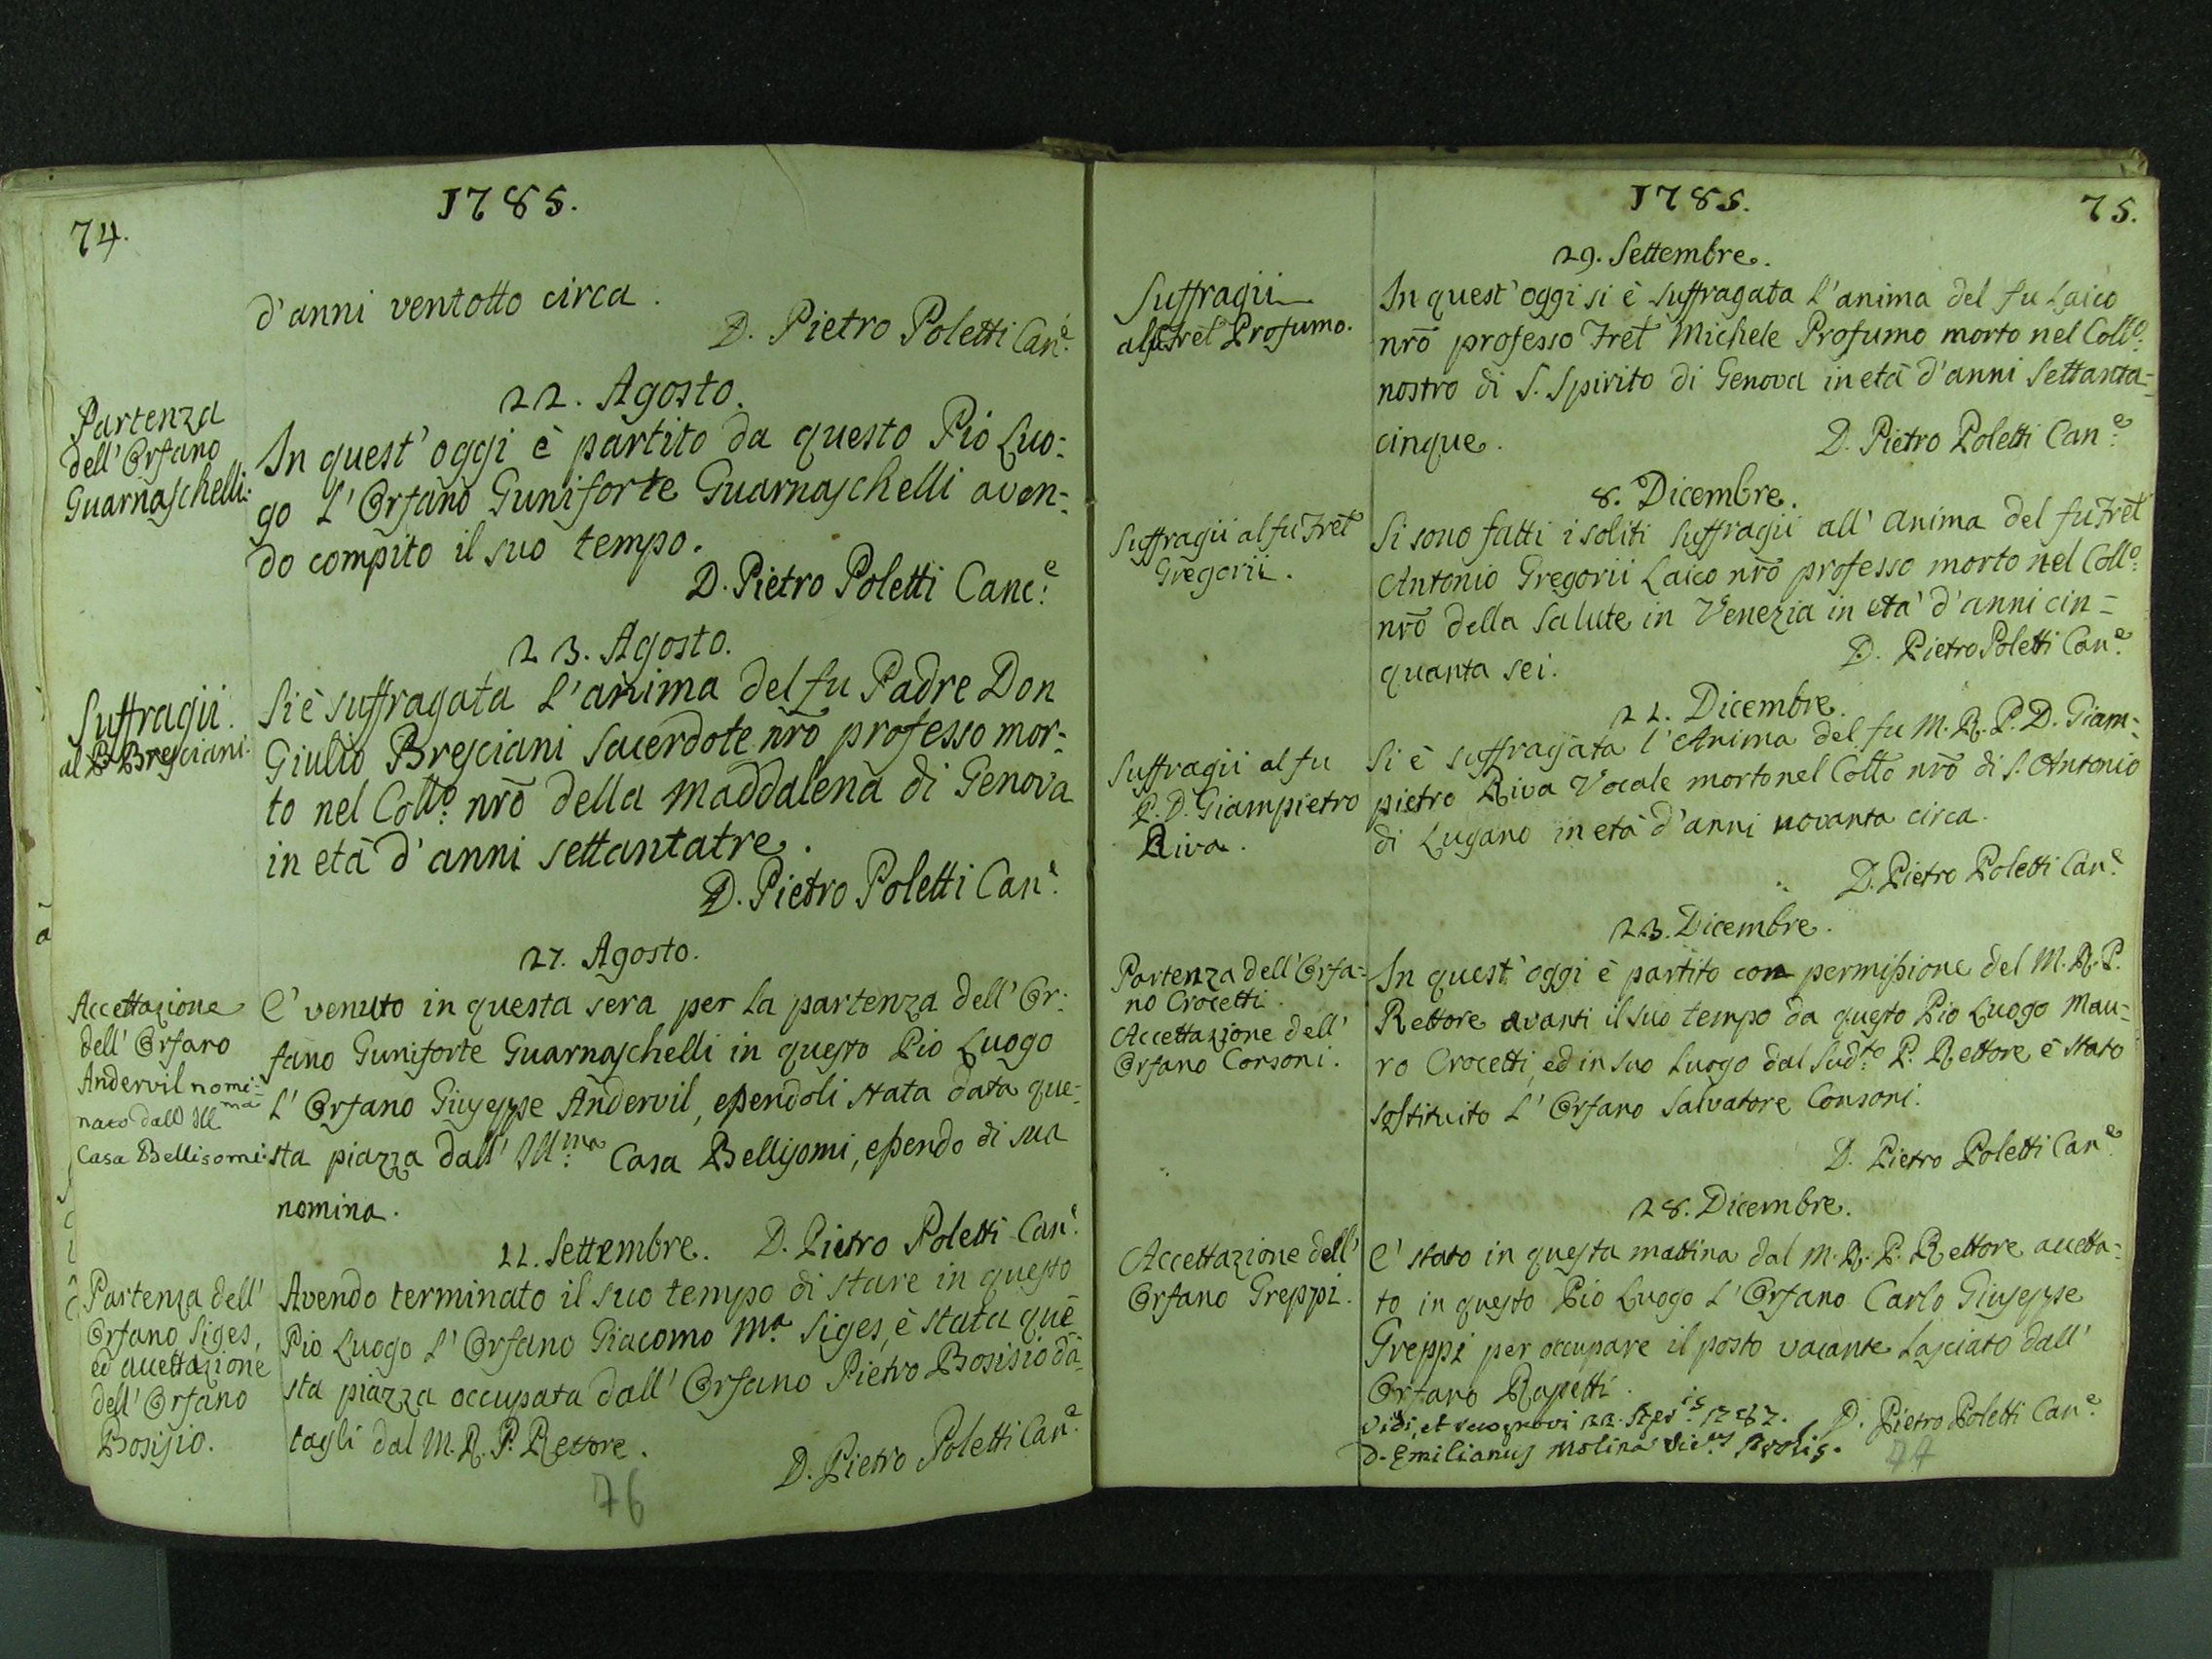 74.
1785.
d'anni ventotto circa.
D. Pietro Poletti Can.e
22. Agosto.
Partenza
dell'Orfano
Guarnaschelli.
In quest'oggi è partito da questo Pio Luo=
go l'Orfano Guniforte Guarnaschelli aven=
do compito il suo tempo.
D. Pietro Poletti Canc:e
23. Agosto.
Suffragii
al P. Bresciani.
Si è suffragata l'anima del fu Padre Don
Giulio Bresciani Sacerdote nrõ professo mor=
to nel Coll:o nrõ della Maddalena di Genova
in età d'anni settantatre.
D. Pietro Poletti Can.e
27. Agosto.
Accettazione
dell'Orfano
Andervil nomi=
nato dall Ill.ma
Casa Bellisomi.
E' venuto in questa sera per la partenza dell'Or=
fano Guniforte Guarnaschelli in questo Pio Luogo
l'Orfano Giuseppe Andervil, essendoli stata data que=
sta piazza dall'Ill:ma Casa Bellisomi, essendo di sua
nomina.
D. Pietro Poletti Can.e
22. Settembre.
Partenza dell'
Orfano Siges,
ed accettazione
dell'Orfano
Bosisio.
Avendo terminato il suo tempo di stare in questo
Pio Luogo l'Orfano Giacomo M.a Siges, è stata que=
sta piazza occupata dall'Orfano Pietro Bosisio da=
tagli dal M. R. P. Rettore.
D. Pietro Poletti Can.e
76
1785.
75.
29. Settembre.
Suffragii
al fu Fret Profumo.
In quest'oggi si è suffragata l'anima del fu Laico
nrõ professo Fret Michele Profumo morto nel Coll:o
nostro di S. Spirito di Genova in età d'anni settanta=
cinque.
D. Pietro Poletti Can.e
8. Dicembre.
Suffragii al fu Fret
Gregorii.
Si sono fatti i soliti suffragii all'anima del fu Fret
Antonio Gregorii Laico nrõ professo morto nel Coll:o
nrõ della Salute in Venezia in età d'anni cin=
quanta sei.
D. Pietro Poletti Can.e
22. Dicembre.
Suffragii al fu
P. D. Giampietro
Riva.
Si è suffragata l'Anima del fu M. R. P. D. Giam=
pietro Riva Vocale morto nel Collo nrõ di S. Antonio
di Lugano in età d'anni novanta circa.
D. Pietro Poletti Can.e
23. Dicembre.
Partenza dell'Orfa=
no Crocetti.
Accettazione dell'
Orfano Corsoni.
In quest'oggi è partito con permissione del M. R. P.
Rettore avanti il suo tempo da questo Pio Luogo Mau=
ro Crocetti, ed in suo luogo dal sud:to P. Rettore è stato
sostituito l'Orfano Salvatore Consoni.
D. Pietro Poletti Can.e
28. Dicembre.
Accettazione dell'
Orfano Greppi.
E' stato in questa mattina dal M. R. P. Rettore accetta=
to in questo Pio Luogo l'Orfano Carlo Giuseppe
Greppi per occupare il posto vacante lasciato dall'
Orfano Rapetti.
D. Pietro Poletti Can.e
Vidi, et recognovi 1787.
D. Emilianus Molina
77